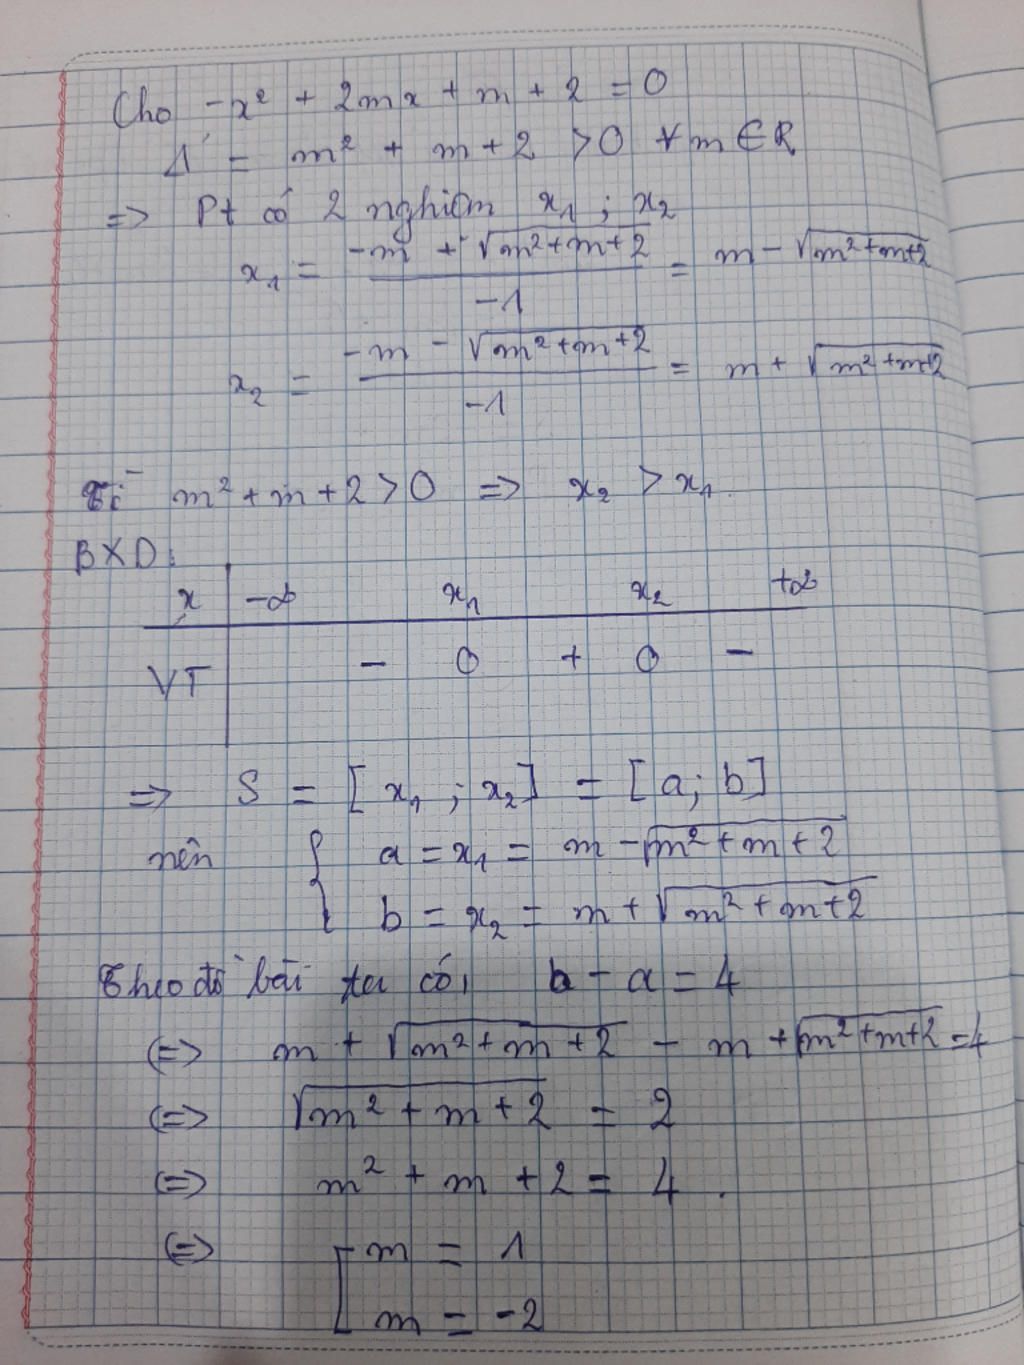 Cho -x² + 2mx + m + 2 = 0
Δ' = m² + m + 2 > 0 ∀m ∈ R
=> Pt có 2 nghiệm x₁ ; x₂
x₁ = (-m + √(m²+m+2))/(-1) = m - √(m²+m+2)
x₂ = (-m - √(m²+m+2))/(-1) = m + √(m²+m+2)
Vì m² + m + 2 > 0 => x₂ > x₁
BXD:
x -∞ x₁ x₂ +∞
VT - 0 + 0 -
=> S = [x₁ ; x₂] = [a; b]
nên { a = x₁ = m - √(m²+m+2)
b = x₂ = m + √(m²+m+2)
Theo đề bài ta có, b - a = 4
(=> m + √(m²+m+2) - m + √(m²+m+2) = 4
(=> √(m² + m + 2) = 2
(=> m² + m + 2 = 4 .
(=> [ m = 1
m = -2